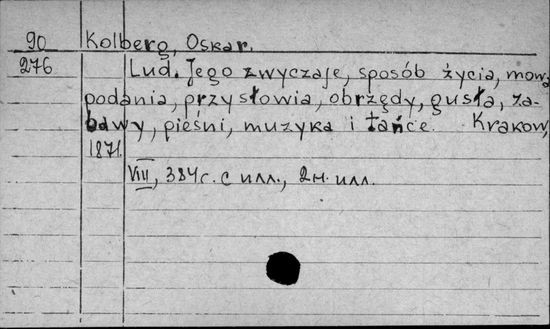 90 Kolberg, Oskar.
276 Lud. Jego zwyczaje, sposób życia, mowa
podania, przysłowia, obrzędy, gusła, za-
bawy, pieśni, muzyka i tańce. Krakow,
1871.
VIII, 384 с. с илл., 2 н. илл.